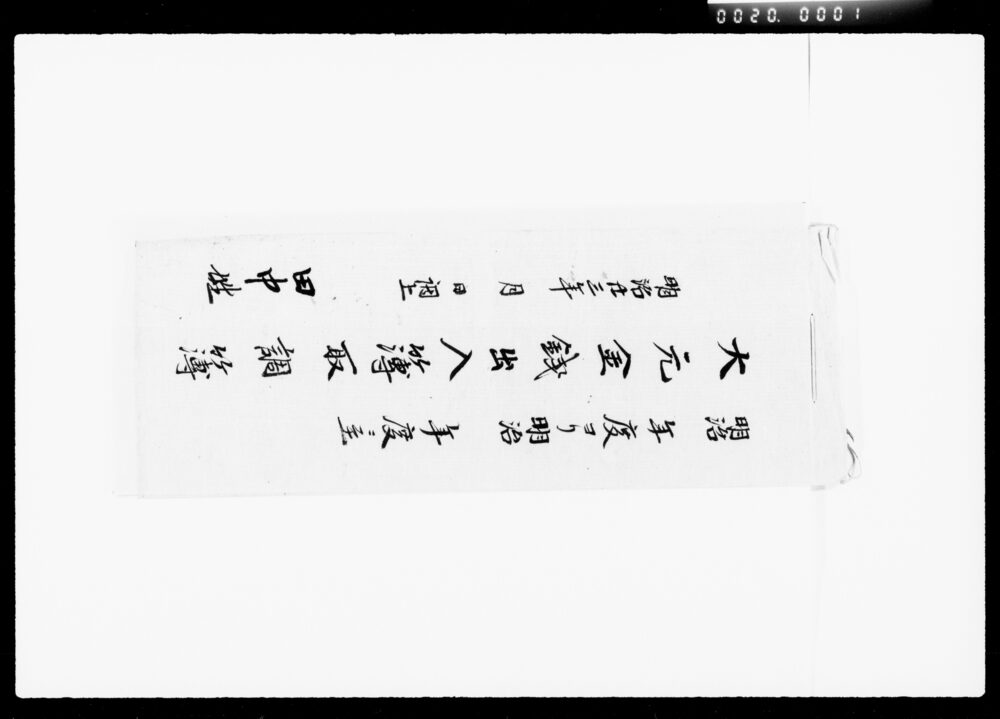 0020. 0001
明治 年度ヨリ明治 年度ニ至
大元金銭出入簿取調簿
明治廿三年 月 日調上 田中